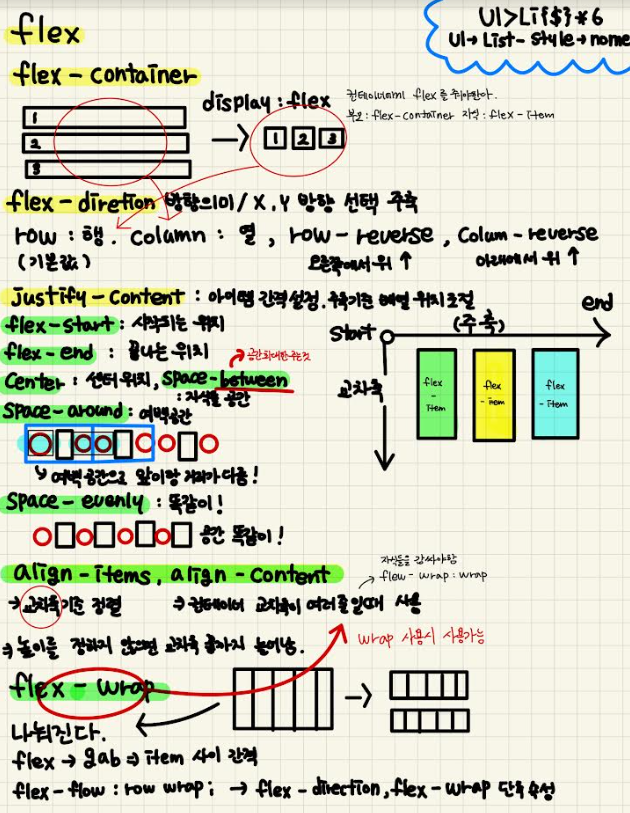 flex
Ul>Li{$}*6
Ul→List-style→none
flex-container
display:flex
컨테이너에 flex를 줘야한다.
부모:flex-container 자식:flex-item
1
2
3
1 2 3
flex-diretion 방향의미/X.Y 방향 선택 주축
row : 행. column : 열, row-reverse, Colum-reverse
(기본값)
오른쪽에서 위↑
아래에서 위↑
justify-content : 아이템 간격설정. 주축기준 배열 위치조절
flex-start : 시작되는 위치
flex-end : 끝나는 위치
center : 센터위치, space-between
: 자식들 공간
space-around : 여백공간
여백공간으로 앞이랑 거리가 다름!
space-evenly : 똑같이!
공간 똑같이!
start
(주축)
end
교차축
flex
-
item
flex
- item
flex
- item
align-items, align-content
자식들을 감싸야함
flew-wrap:wrap
→ 교차축기준 정렬
→ 컨테이너 교차축이 여러줄일때 사용
→ 높이를 정하지 않으면 교차축 끝까지 늘어남.
wrap 사용시 사용가능
flex-wrap
나눠진다.
flex → gab ⇒ item 사이 간격
flex-flow : row wrap; → flex-direction, flex-wrap 단축속성